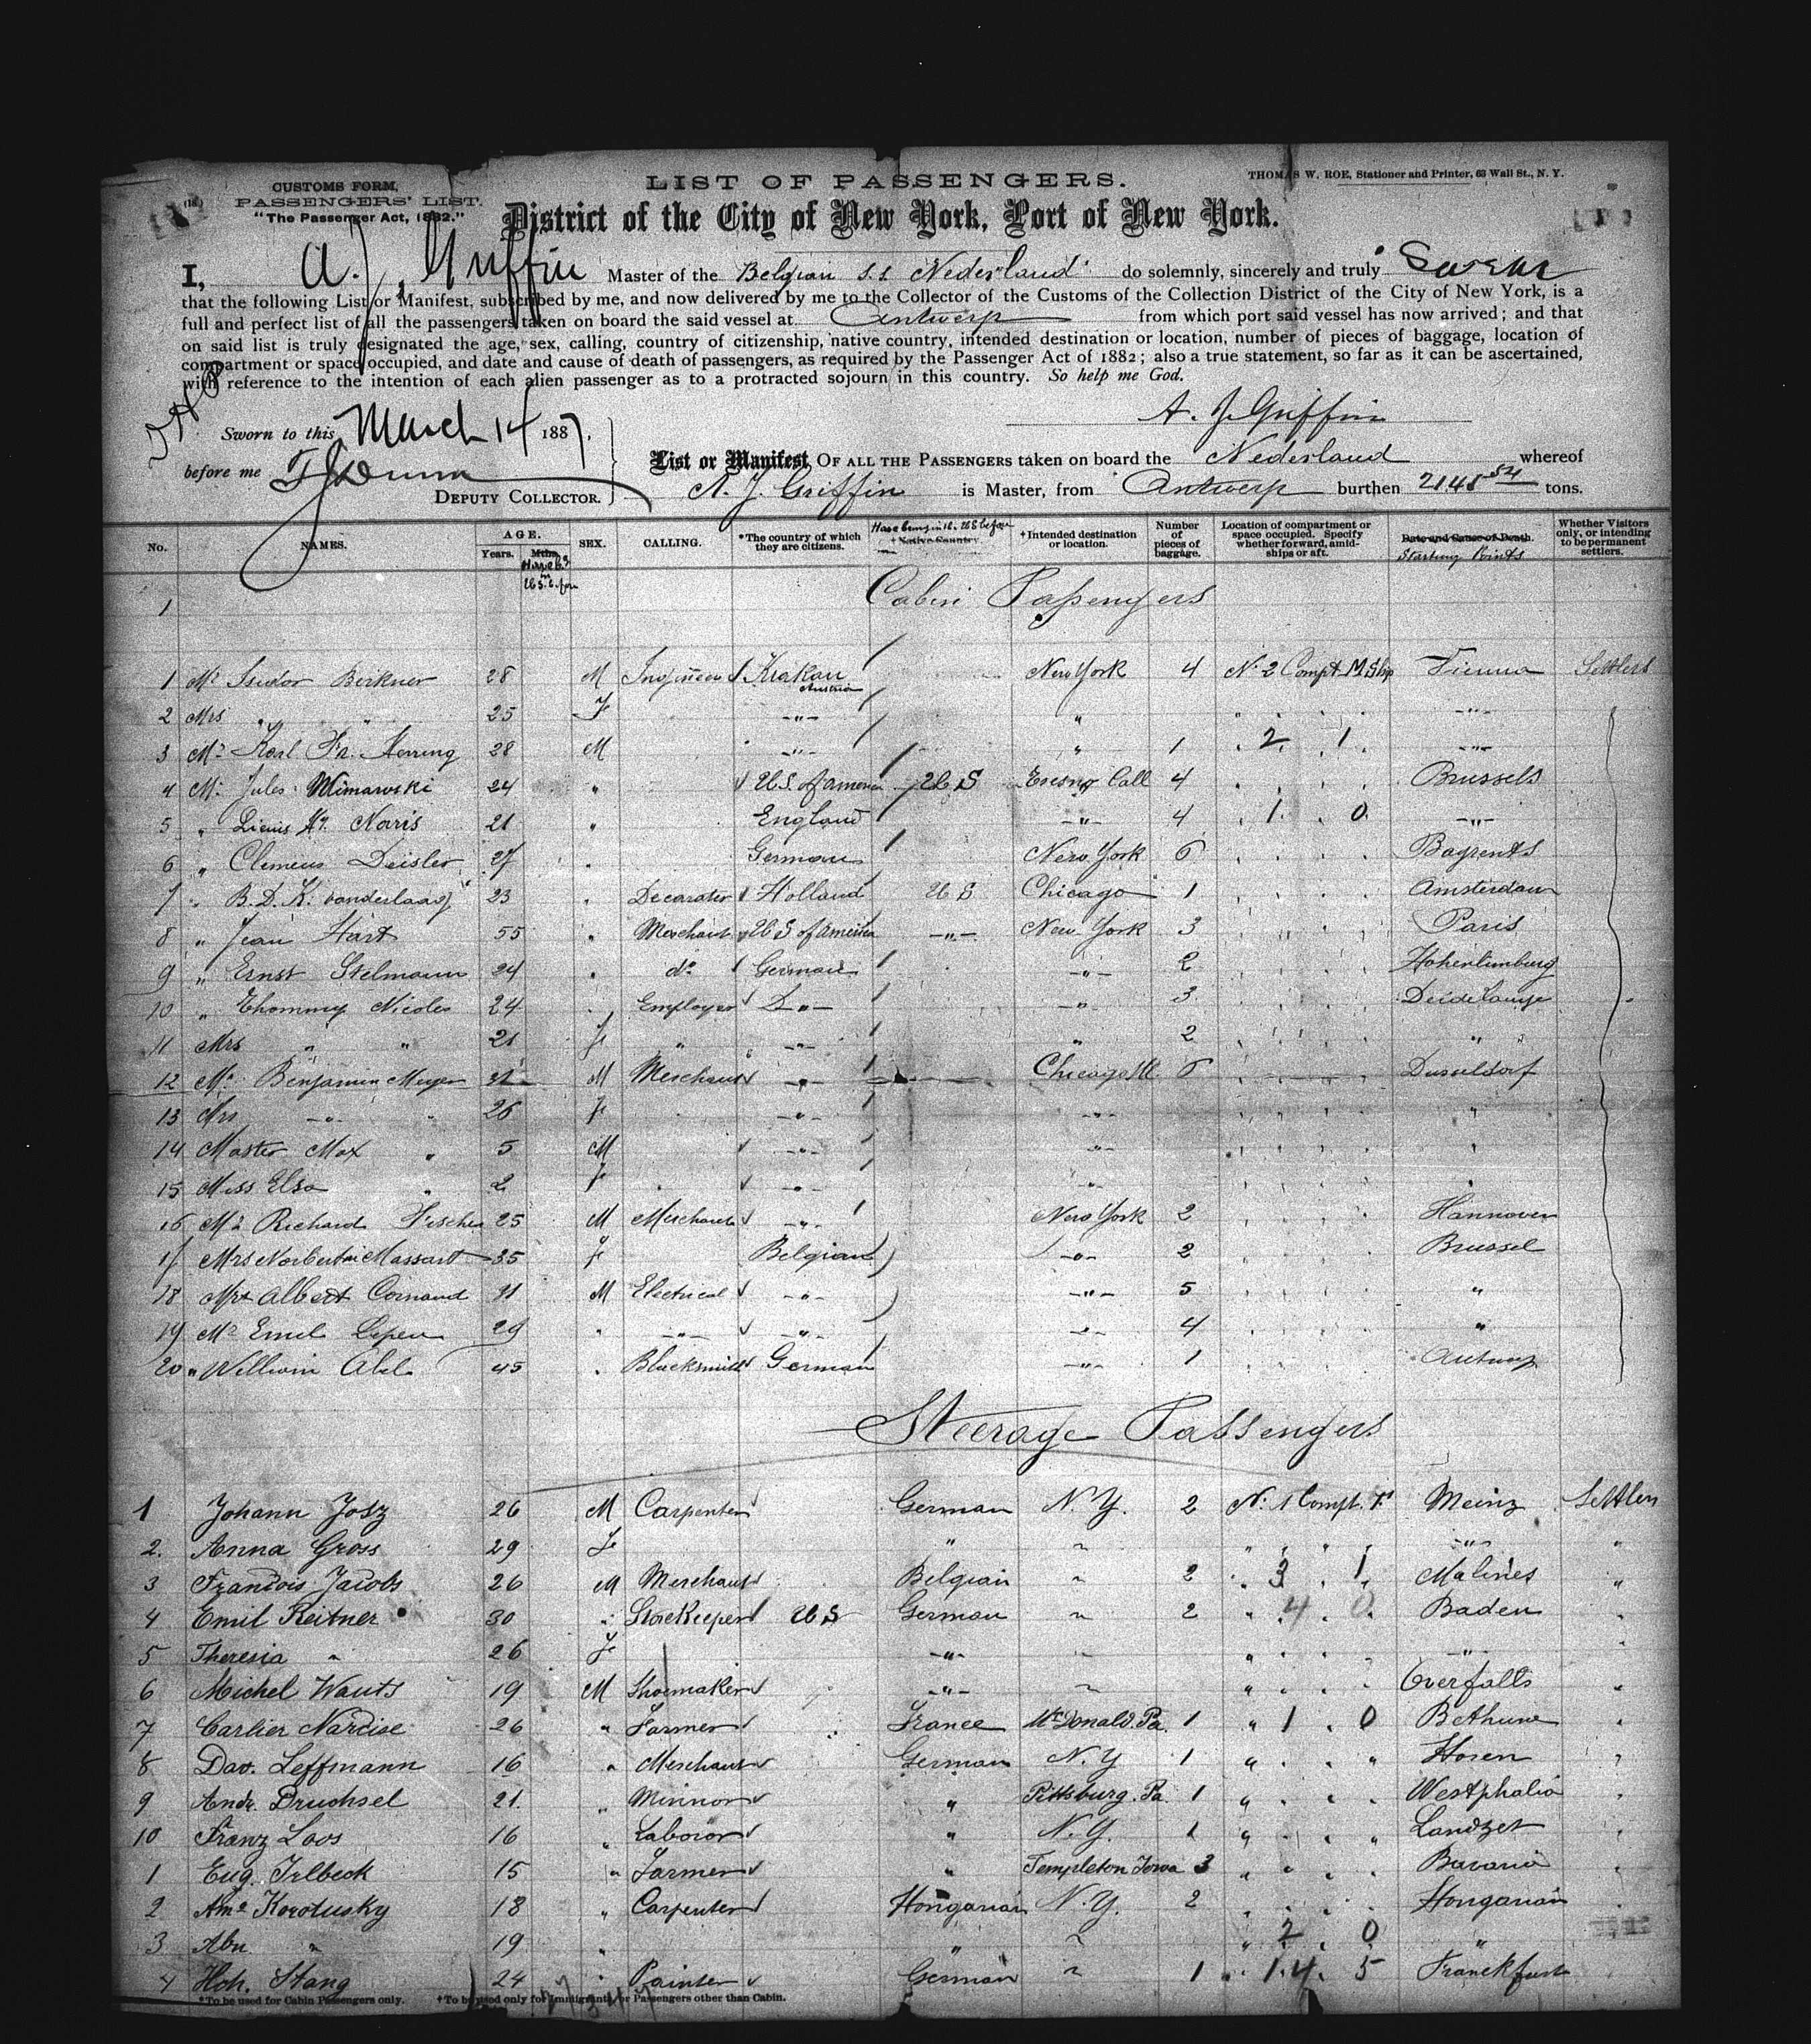 CUSTOMS FORM,
PASSENGERS' LIST.
"The Passenger Act, 1882."
LIST OF PASSENGERS.
THOMAS W. ROE, Stationer and Printer, 63 Wall St., N. Y.
District of the City of New York, Port of New York.
I, A. J. Griffin Master of the Belgian S.S. Nederland do solemnly, sincerely and truly Swear
that the following List or Manifest, subscribed by me, and now delivered by me to the Collector of the Customs of the Collection District of the City of New York, is a
full and perfect list of all the passengers taken on board the said vessel at Antwerp from which port said vessel has now arrived; and that
on said list is truly designated the age, sex, calling, country of citizenship, native country, intended destination or location, number of pieces of baggage, location of
compartment or space occupied, and date and cause of death of passengers, as required by the Passenger Act of 1882; also a true statement, so far as it can be ascertained,
with reference to the intention of each alien passenger as to a protracted sojourn in this country. So help me God.
A. J. Griffin
Sworn to this March 14 1887.
before me
DEPUTY COLLECTOR.
List or Manifest OF ALL THE PASSENGERS taken on board the Nederland whereof
A. J. Griffin is Master, from Antwerp burthen tons.
No. NAMES. AGE. Years. Mths. SEX. CALLING. *The country of which they are citizens. †Native Country †Intended destination or location. Number of pieces of baggage. Location of compartment or space occupied. Specify whether forward, amidships or aft. Date and Cause of Death. Starting Points Whether Visitors only, or intending to be permanent settlers.
1 Cabin Passengers
1 Mr Isidor Birkner 28 M Krakau Austria New York 4 No 2 Compt M Ship Vienna Settlers
2 Mrs " " 25 F " "
3 Mr Karl Fr. 28 M " " 1 2 1 "
4 Mr Jules 24 " U.S. of America U S Fresno Call 4 Brussels
5 " Noris 21 " England " 4 1 0 "
6 " Clemens Deisler 27 " German New York 6
7 " B. D. K. vanderlaag 23 " Decorator Holland U S Chicago 1 Amsterdam
8 " Jean Hart 55 " Merchant U S of America " New York 3 Paris
9 " Ernst Stelmann 24 " do German " 2
10 " Nicoles 24 " Employer Do " 3
11 Mrs " " 21 F " " " 2 "
12 Mr Benjamin Meyer M Merchant " Chicago Ill 6 Dusseldorf
13 Mrs " " 26 F " " "
14 Master Max " 5 M " " "
15 Miss Elsa " 2 F " " "
16 Mr Richard Fischer 25 M Merchant " New York 2 Hannover
17 Mrs Massart 35 F Belgian " 2 Brussel
18 Albert 11 M Electrical " " 5 "
19 Mr Emil 29 " " " " 4 "
20 " William Abel 45 " Blacksmith German " 1 Antwerp
Steerage Passengers
1 Johann Josz 26 M Carpenter German N.Y. 2 No 1 Compt. Meinz Settlers
2. Anna Gross 29 F " " " "
3 Francois Jacobs 26 M Merchant Belgian " 2 3 1 Malines "
4 Emil Reitner 30 " Storekeeper U S German " 2 4 0 Baden "
5 Theresia " 26 F " " " "
6 Michel Wauts 19 M Shoemaker " " Overfalts "
7 Carlier Narcise 26 " Farmer France McDonald. Pa. 1 " 1 . 0 Bethune "
8 Dav. Leffmann 16 " Merchant German N.Y 1 " Horen "
9 Andr. Druchsel 21. " Minnor " Pittsburg. Pa. 1 " Westphalia "
10 Franz Loos 16 " Laboror " N.Y. 1 " "
1 Eug. Irlbeck 15 " Farmer " Templeton Iowa 3 " Bavaria "
2 Korotusky 18 " Carpenter Hongarian N.Y. 2 Hongarian
3 Abr. " 19 " " " 2 . 0 "
4 Hch. Stang 24 " Painter German " 1 1.4. 5 Franckfurt
*To be used for Cabin Passengers only. †To be used only for Immigrants or Passengers other than Cabin.